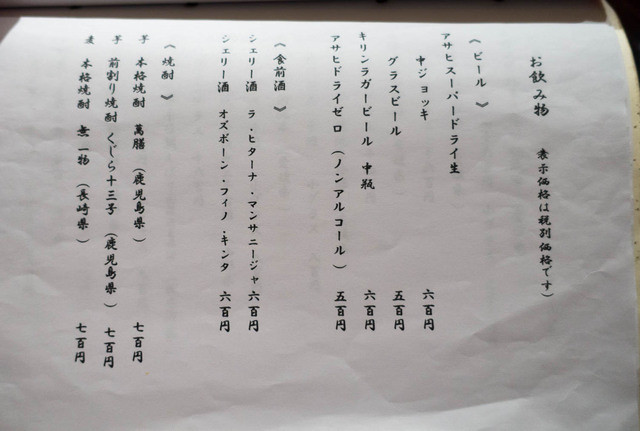 お飲み物　表示価格は税別価格です）
《ビール》
アサヒスーパードライ生
中ジョッキ　六百円
グラスビール　五百円
キリンラガービール　中瓶　六百円
アサヒドライゼロ（ノンアルコール）　五百円
《食前酒》
シェリー酒　ラ・ヒターナ・マンサニージャ　六百円
シェリー酒　オズボーン・フィノ・キンタ　六百円
《焼酎》
芋　本格焼酎　萬膳（鹿児島県）　七百円
芋　前割り焼酎　くじら十三号（鹿児島県）　七百円
麦　本格焼酎　無一物（長崎県）　七百円